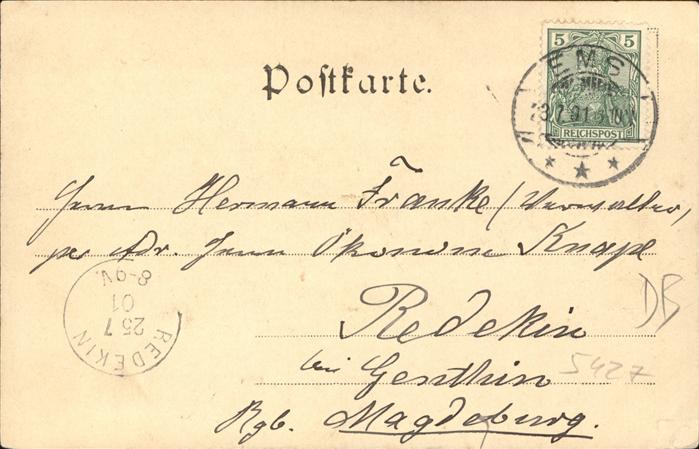 5 5
Postkarte.
EMS
REICHSPOST
Herrn Hermann Franke (Verwalter)
pr. Adr. Herrn Ökonom Knape
8-9V.
25 7
01
REDEKIN
Redekin
DB
bei Genthin
5427
Rgb. Magdeburg.